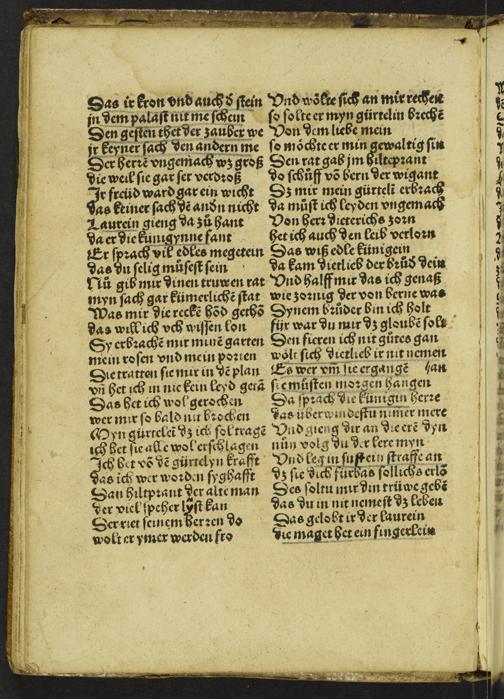 Das ir kron vnd auch d̄ stein
jn dem palast nit me schein
Den gesten thet der zauber we
jr keyner sach den andern me
Der herrē vngemach wz groß
die weil sie gar ser verdroß
Ir freüd ward gar ein wicht
das keiner sach dē andn nicht
Laurein gieng da zů hant
da er die künigynne fant
Er sprach vil edles megetein
das du selig müsest sein
Nů gib mir dinen truwen rat
myn sach gar kümerlichē stat
Was mir die reckē hōd gethō
das will ich vch wissen lon
Sy erbrachē mir minē garten
mein rosen vnd mein porten
Sie tratten sie mir in dē plan
vn̄ het ich in nie kein leyd getā
Das het ich wol gerochen
wer mir so bald nit brochen
Myn gürtelē dz ich sol tragē
ich het sie alle wol erschlagen
Ich het vō dē gürtelyn krafft
das ich wer worden syghafft
Dan hiltprant der alte man
der viel speher lyst kan
Der riet seinem herren do
wolt er ymer werden fro
Vnd wölte sich an mir rechen
so solte er myn gürtelin brechē
Von dem liebe mein
so möchte er min gewaltig sin
Den rat gab jm hiltprant
do schüff vō bern der wigant
Dz mir mein gürteli erbrach
da můst ich leyden vngemach
Von herr dieterichs zorn
het ich auch den leib verlorn
Das wiß edle künigein
da kam dietlieb der brůd dein
Vnd halff mir das ich genaß
wie zornig der von berne was
Dynem brüder bin ich holt
für war du mir dz gloubē solt
Den fieren ich nit gůtes gan
wölt sich dietlieb ir nit nemen
Es wer vm̄ sie ergangē an
sie müsten morgen hangen
Da sprach die künigin herre
das überwindestu nim̄er mere
Vnd gieng dir an die erē dyn
nůn volg du d̄ lere myn
Vnd leg in sust ein straffe an
dz sie dich fürbas sollichs erlō
Des soltu mir din trüwe gebē
das du in nit nemest dz leben
Das gelobt ir der laurein
die maget het ein fingerlein